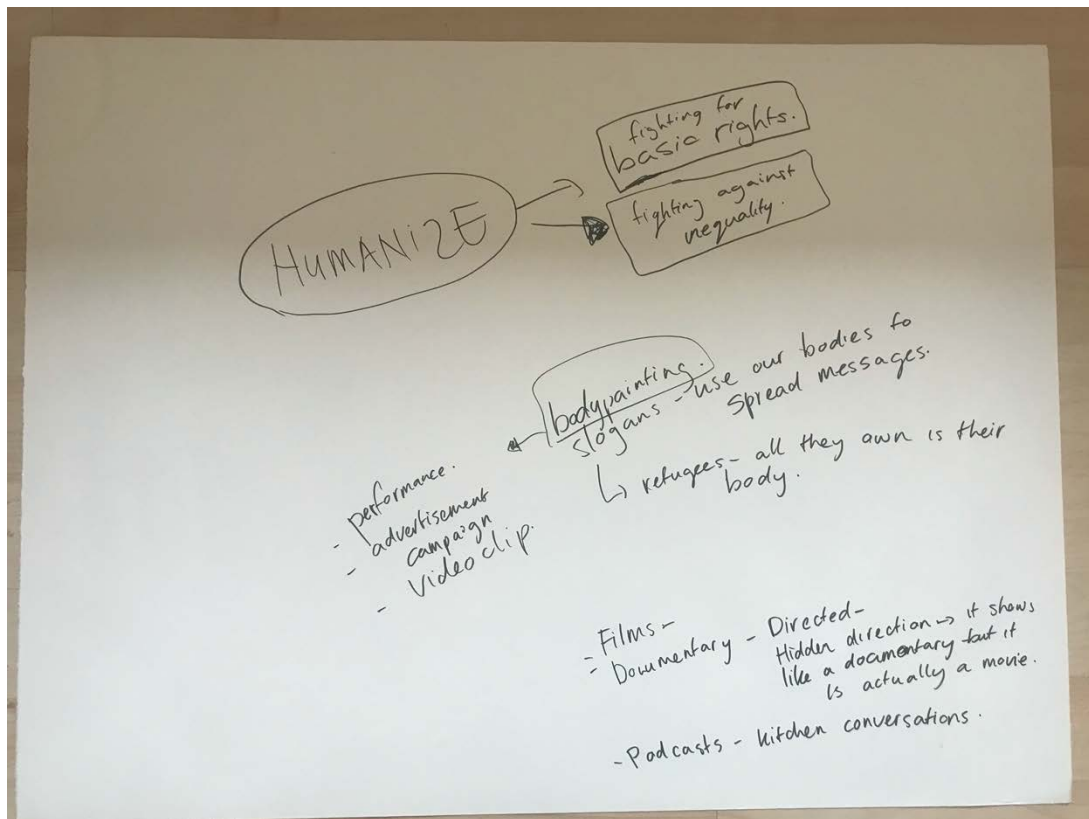 HUMANIZE
fighting for
basic rights.
fighting against
inequality.
bodypainting.
slogans - use our bodies to
spread messages.
↳ refugees - all they own is their
body.
- performance.
- advertisement
campaign
- videoclip.
- Films -
- Documentary - Directed -
Hidden direction → it shows
like a documentary but it
is actually a movie.
- Podcasts - kitchen conversations.